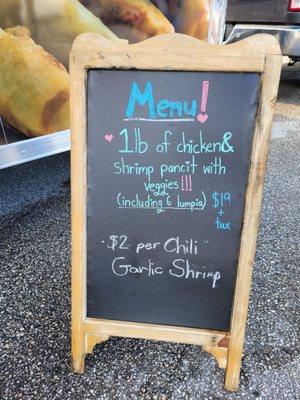 Menu!
1lb of chicken &
shrimp pancit with
veggies!!!
(including 6 lumpia) $19
+
tax
$2 per Chili
Garlic Shrimp